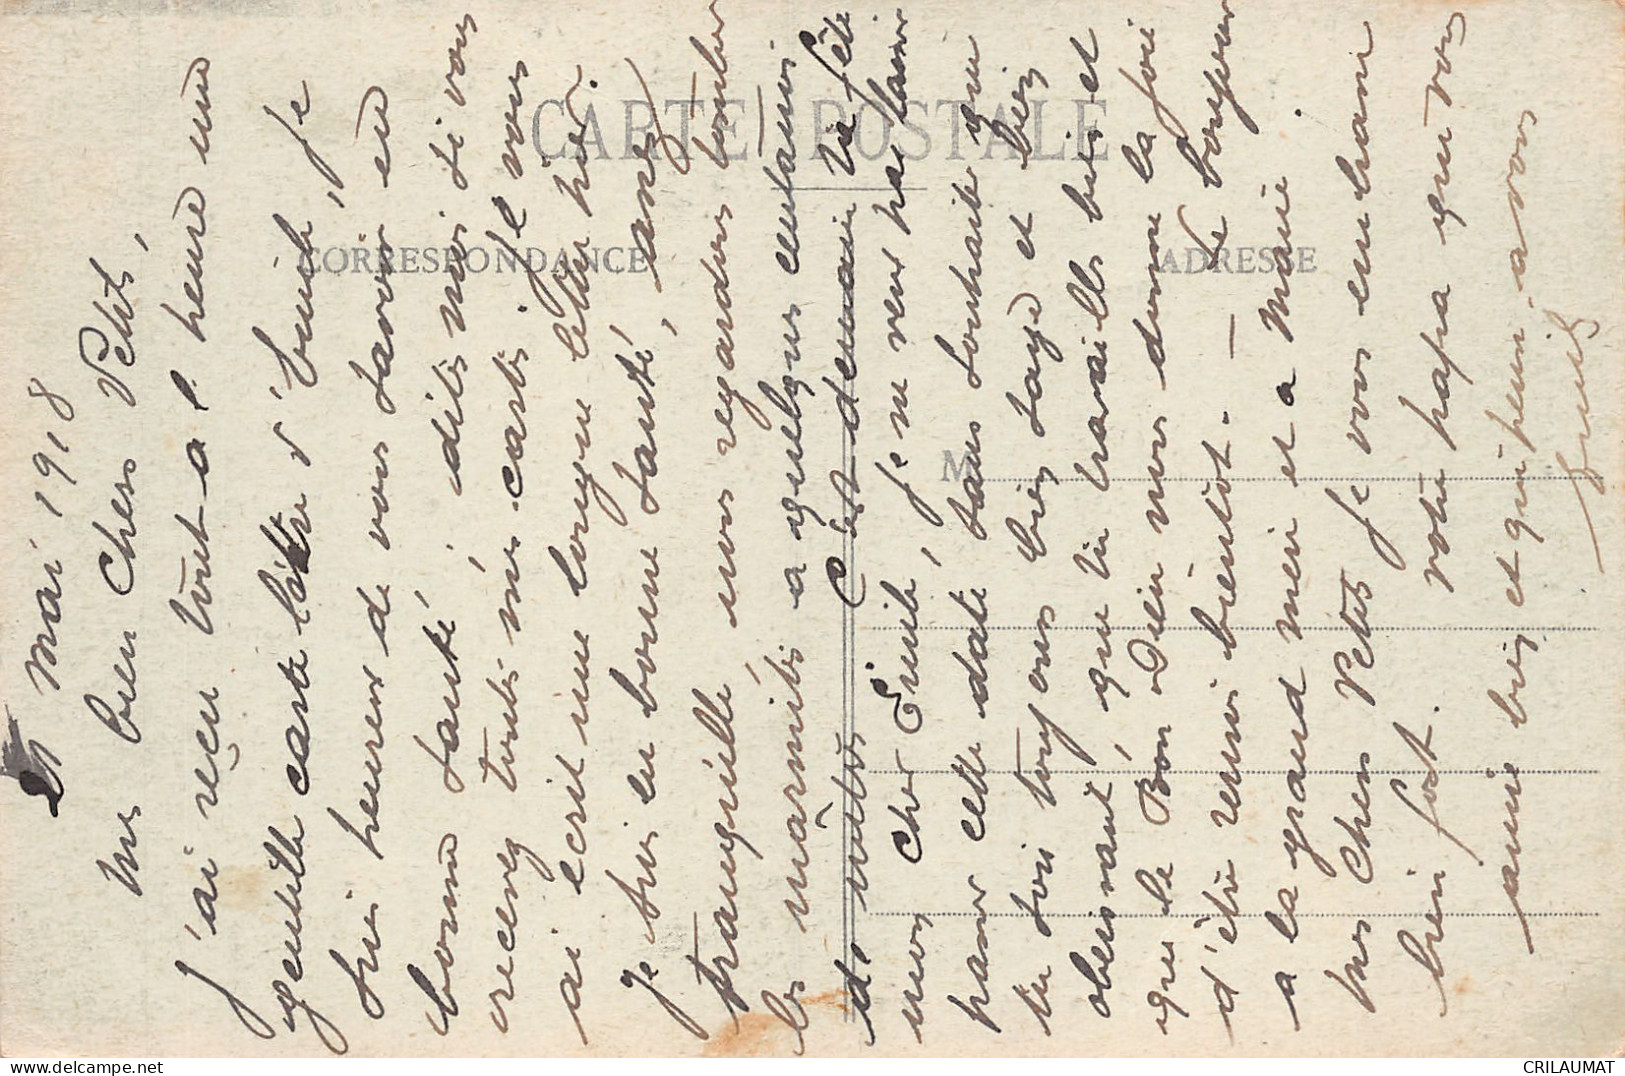 CARTE POSTALE
CORRESPONDANCE
ADRESSE
M
21 Mai 1918
Mes bien Chers Petits,
J'ai reçu tout a l'heure une
gentille carte lettre d'Emile, je
suis heureux de vous savoir en
bonne santé, dites moi si vous
recevez toutes mes cartes, je vous
ai écrit une longue lettre hier.
Je suis en bonne santé, assez
tranquille, nous regardons tomber
les marmites a quelques centaines
de mètres C'est demain ta fête
mon cher Emile, je ne veux pas laisser
passer cette date, sans souhaiter que
tu sois toujours bien sage et bien
obeissant, que tu travailles bien et
que le Bon Dieu nous donne la joie
d'être reunis bientôt. — Le bonjour
a la grand mère et a Marie.
Mes Chers Petits je vous embrasse
bien fort. votre papa qui vous
aime bien et qui pense a vous
Emile
CRILAUMAT